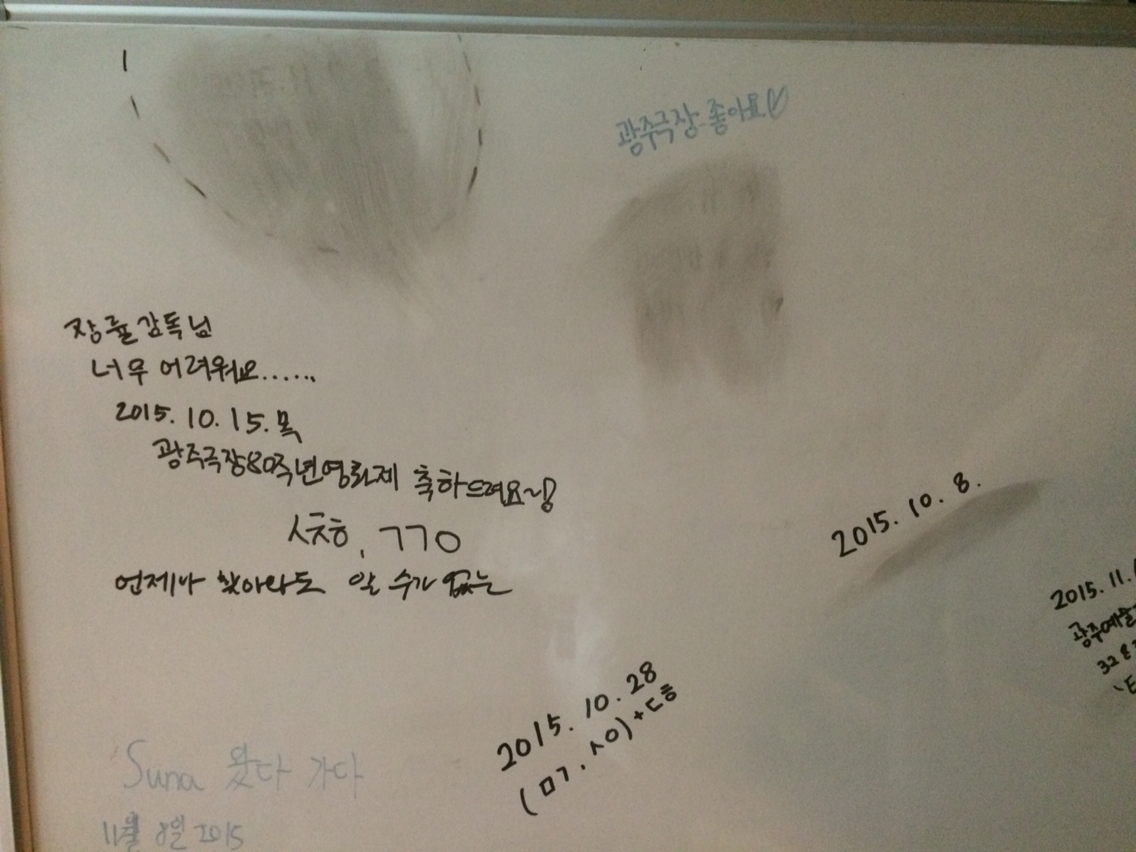 광주극장 좋아요♡
장률감독님
너무 어려워요......
2015.10.15.목
광주극장80주년영화제 축하드려요~!
ㅅㅊㅎ, ㄱㄱㅇ
언제나 찾아와도 알 수가 없는
2015.10.8.
2015.11.
광주예술
328
2015.10.28
(ㅁㄱ.ㅅㅇ)+ㄷㅎ
Suna 왔다 가다
11월 8일 2015